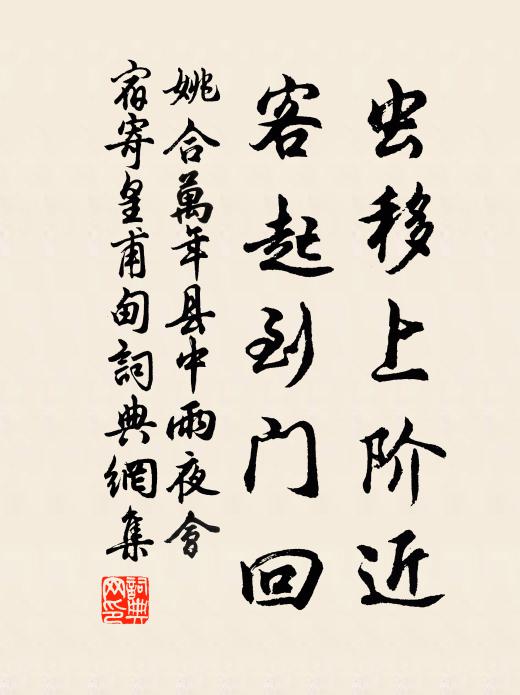 虫移上阶近
客起到门回
姚合萬年县中雨夜會
宿寄皇甫甸詞典網集
詞典
网印